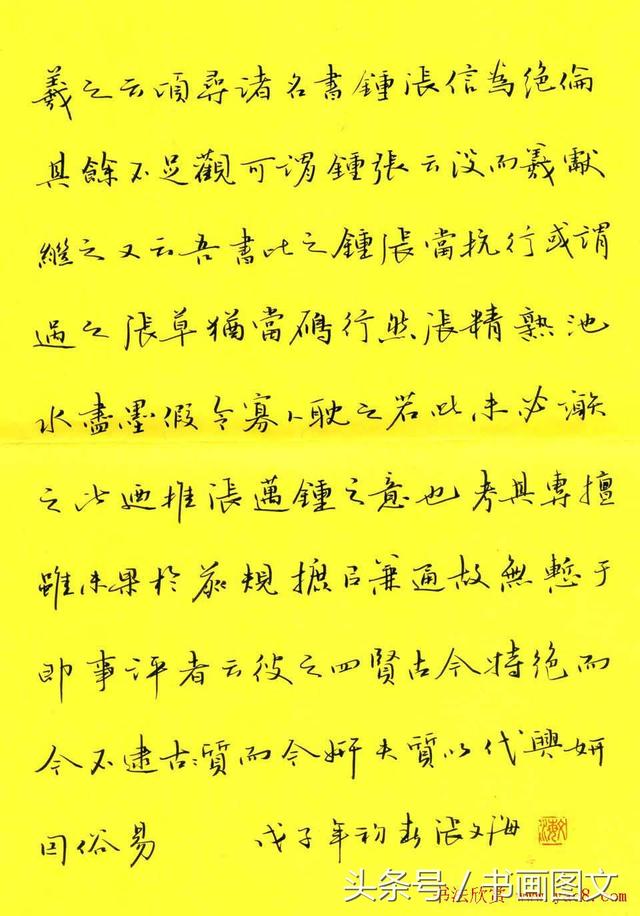 羲之云頃尋諸名書鍾張信為絕倫
其餘不足觀可謂鍾張云沒而羲獻
繼之又云吾書比之鍾張當抗行或謂
過之張草猶當鴈行然張精熟池
水盡墨假令寡人耽之若此未必謝
之此廼推張邁鍾之意也考其專擅
雖未果於前規摭以兼通故無慙于
即事評者云彼之四賢古今特絕而
今不逮古古質而今妍夫質以代興妍
因俗易 戊子年初春張文海
头条号/书画图文
书法欣赏